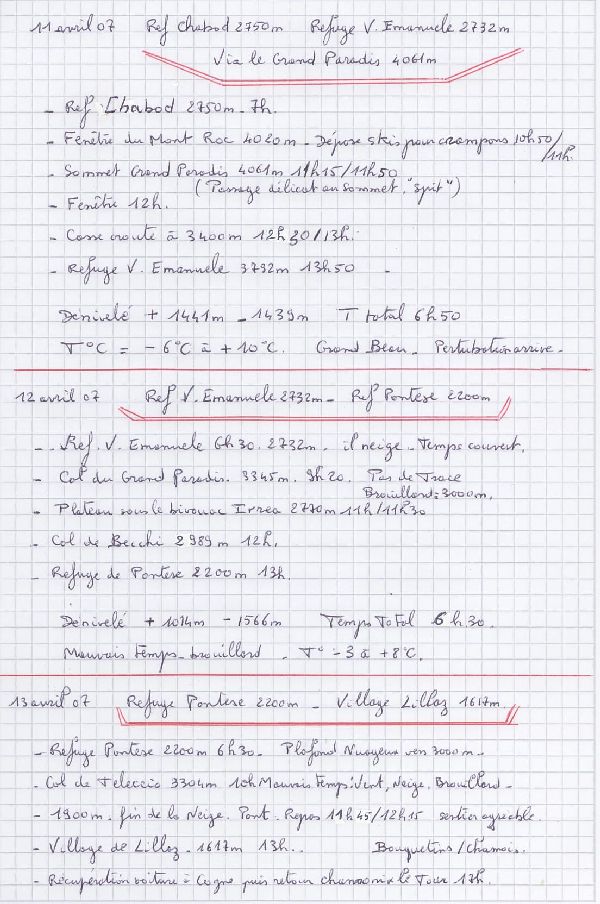 11 avril 07 Ref Chabod 2750m Refuge V. Emanuele 2732m
Via le Grand Paradis 4061m
- Ref. Chabod 2750m - 7h.
- Fenêtre du Mont Roc 4020m - Dépose skis pour crampons 10h50/
11h.
- Sommet Grand Paradis 4061m 11h15/11h50
(Passage délicat au Sommet, "spit")
- Fenêtre 12h.
- Casse croute à 3400m 12h30/13h.
- Refuge V. Emanuele 3732m 13h50 -
Denivelé + 1441m - 1439m T total 6h50
T°C = - 6°C à + 10°C. Grand Beau. Perturbation arrive.
12 avril 07 Ref V. Emanuele 2732m - Ref Pontese 2200m
- . Ref. V. Emanuele 6h30. 2732m. il neige - Temps couvert.
- Col du Grand Paradis. 3345m. 9h20. Pas de Trace
Brouillard = 3000m.
- Plateau sous le bivouac Ivrea 2770m 11h/11h30
- Col de Becchi 2989m 12h.
- Refuge de Pontese 2200m 13h.
Dénivelé + 1014m - 1566m Temps Total 6h30.
Mauvais temps - brouillard. T° -3 à +8°C.
13 avril 07 Refuge Pontese 2200m - Village Lillaz 1617m
- Refuge Pontese 2200m 6h30. Plafond Nuageux vers 3000m -
- Col de Teleccio 3304m 10h Mauvais Temps: Vent, Neige. Brouillard -
- 1900m. fin de la Neige. Pont. Repos 11h45/12h15 sentier agréable.
- Village de Lillaz - 1617m 13h.. Bouquetins/Chamois.
- Récupération voiture à Cogne puis retour chamonix le Tour 17h.